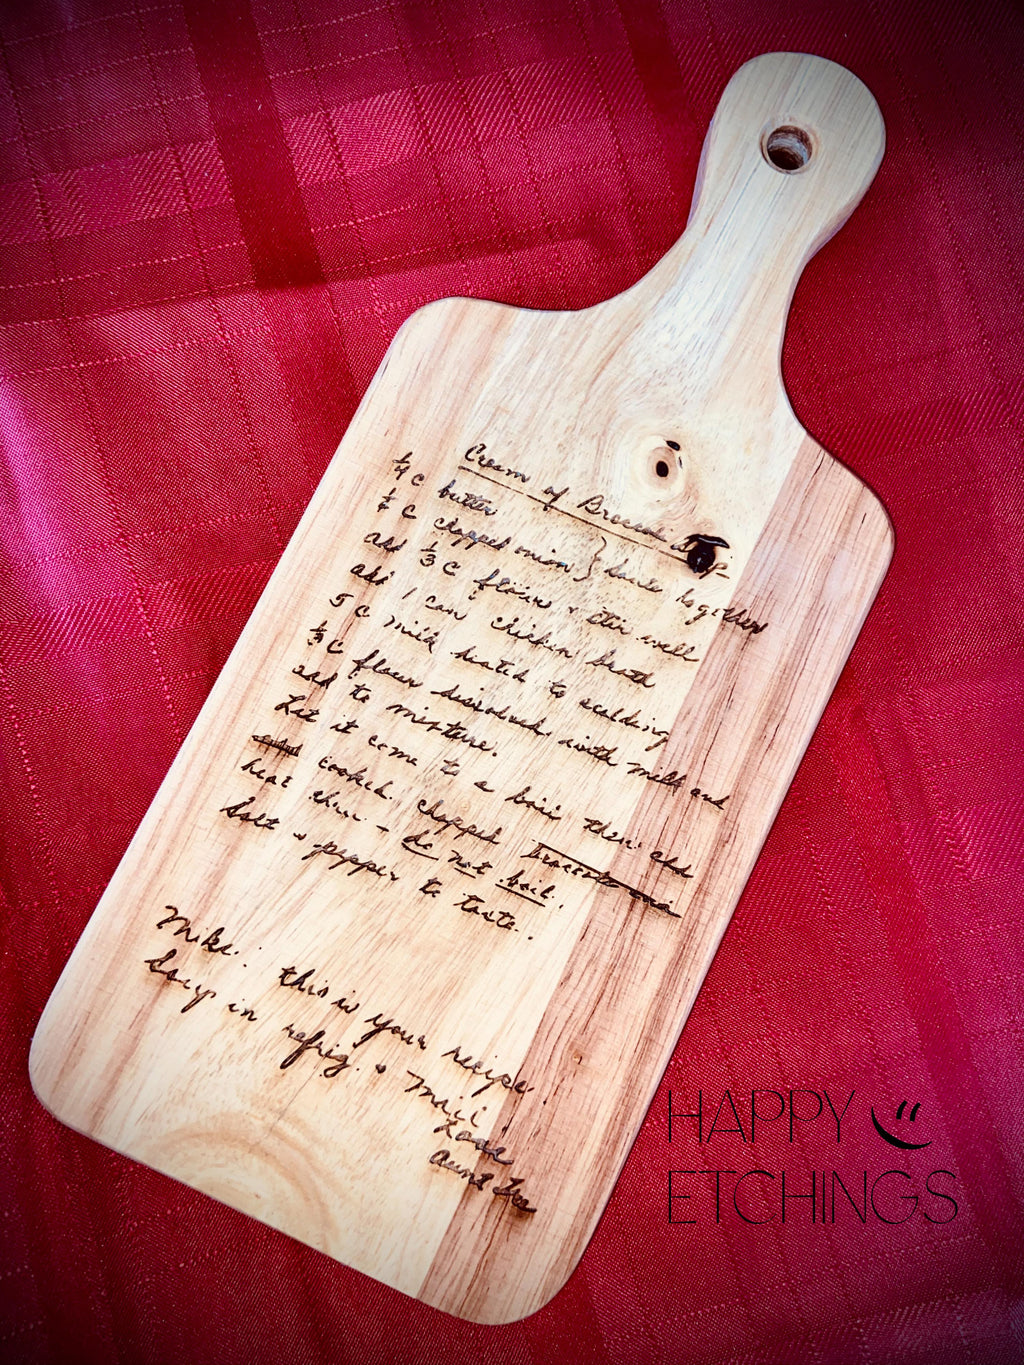 Cream of Broccoli Soup
1/4 C butter
1/2 C chopped onion } saute together
add 1/3 C flour & stir well
add 1 can chicken broth
5 C milk heated to scalding
1/3 C flour dissolved with milk and
add to mixture.
Let it come to a boil then add
cooked chopped broccoli and
heat thru - do not boil.
Salt & pepper to taste.
Mike: this is your recipe.
Soup in refrig. &
Love
Aunt
HAPPY
ETCHINGS